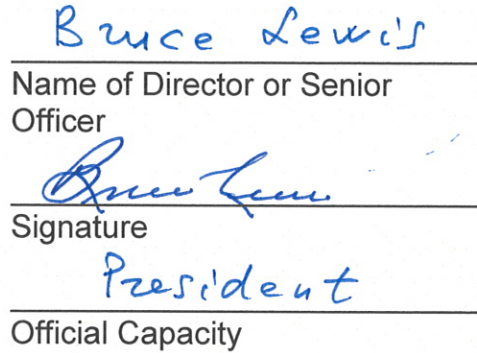 Bruce Lewis
Name of Director or Senior
Officer
Bruce Lewis
Signature
President
Official Capacity